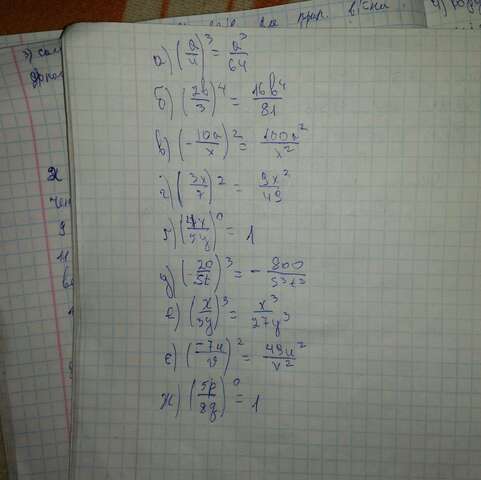 а) (a/4)³ = a³/64
б) (2b/3)⁴ = 16b⁴/81
в) (-10a/x)² = 100a²/x²
г) (3x/7)² = 9x²/49
ґ) (4x/5y)⁰ = 1
д) (-20/5t)³ = - 800/5³t³
е) (x/3y)³ = x³/27y³
є) (-7u/v)² = 49u²/v²
ж) (5p/8q)⁰ = 1